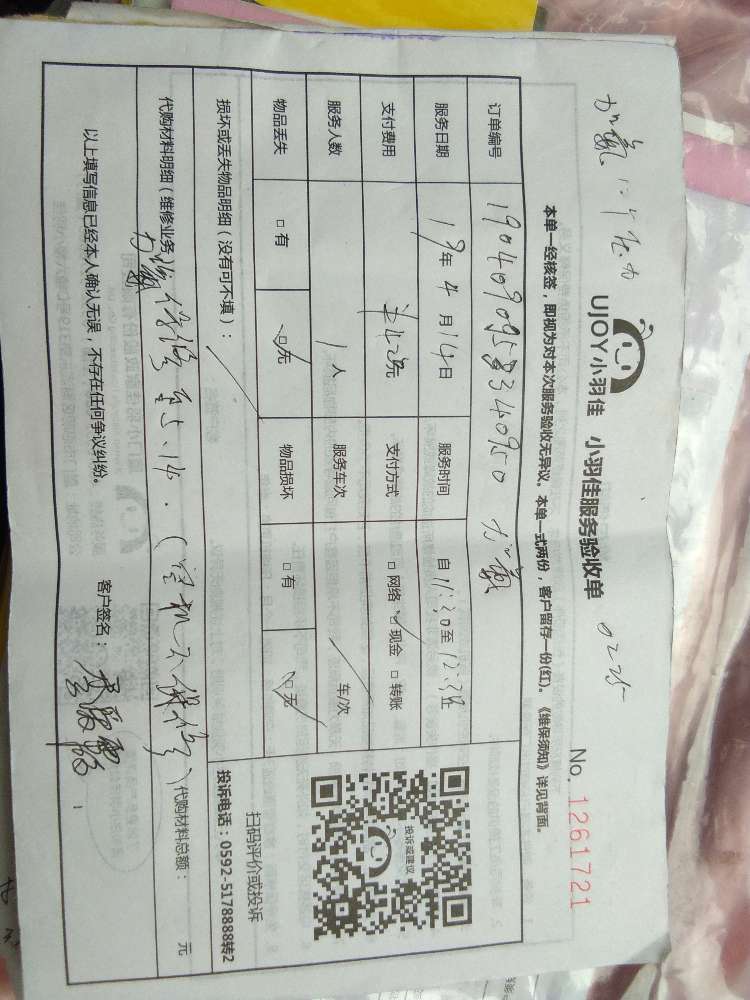 加氟
UJOY小羽佳 小羽佳服务验收单
0225
No. 1261721
本单一经核签，即视为对本次服务验收无异议。本单一式两份，客户留存一份(红)。《维保须知》详见背面。
订单编号 加氟
服务日期 19年4月14日 服务时间 自11:30至12:30
支付费用 元 支付方式 □ 网络 □ 现金 □ 转账
服务人数 1人 服务车次 车/次
物品丢失 □ 有 □ 无 物品损坏 □ 有 □ 无
损坏或丢失物品明细（没有可不填）：
扫码评价或投诉
投诉电话：0592-5178888转2
投诉或建议
代购材料明细（维修业务） 代购材料总额： 元
加氟 (整机不保修)
以上填写信息已经本人确认无误，不存在任何争议纠纷。 客户签名：